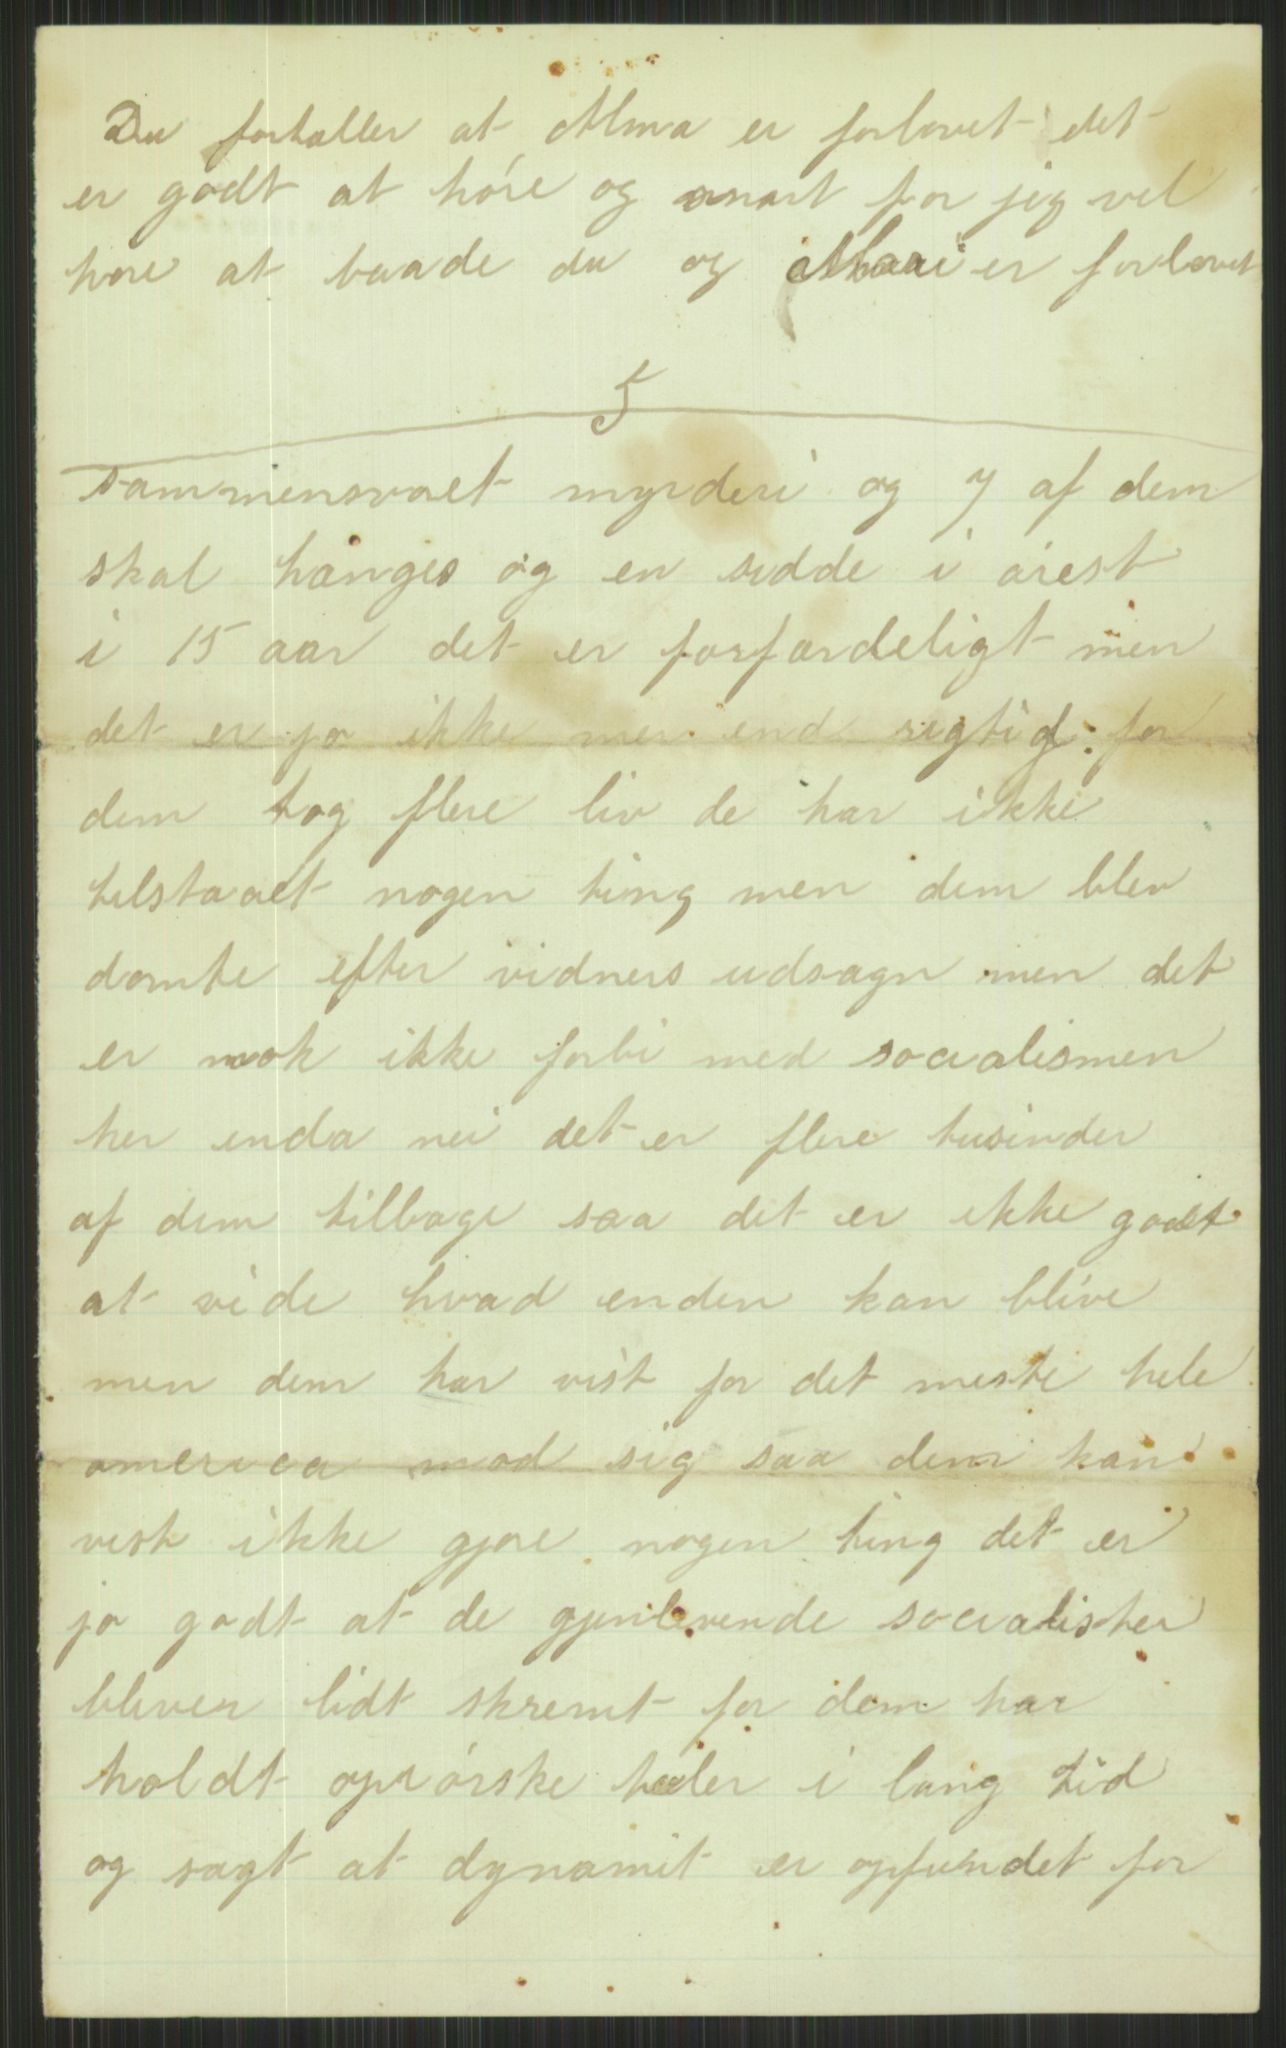 Du fortaller at Alma er forlovet det
er godt at høre og snart for jeg vel
høre at baade du og Mari er forlovet
5
sammensvoet myrderi og 7 af dem
skal hanges og en sidde i arest
i 15 aar det er forfardeligt men
det er jo ikke mer end rigtig for
dem tog flere liv de har ikke
tilstaaet nogen ting men dem blev
domte efter vidners udsagn men det
er nok ikke forbi med socialismen
her enda nei det er flere tusinder
af dem tilbage saa det er ikke godt
at vide hvad enden kan blive
men dem har vist for det meste hele
america mod sig saa dem kan
vist ikke gjøre nogen ting det er
jo godt at de gjenlevende socialister
bliver lidt skremt for dem har
holdt oprørske taler i lang tid
og sagt at dynamit er opfundet for